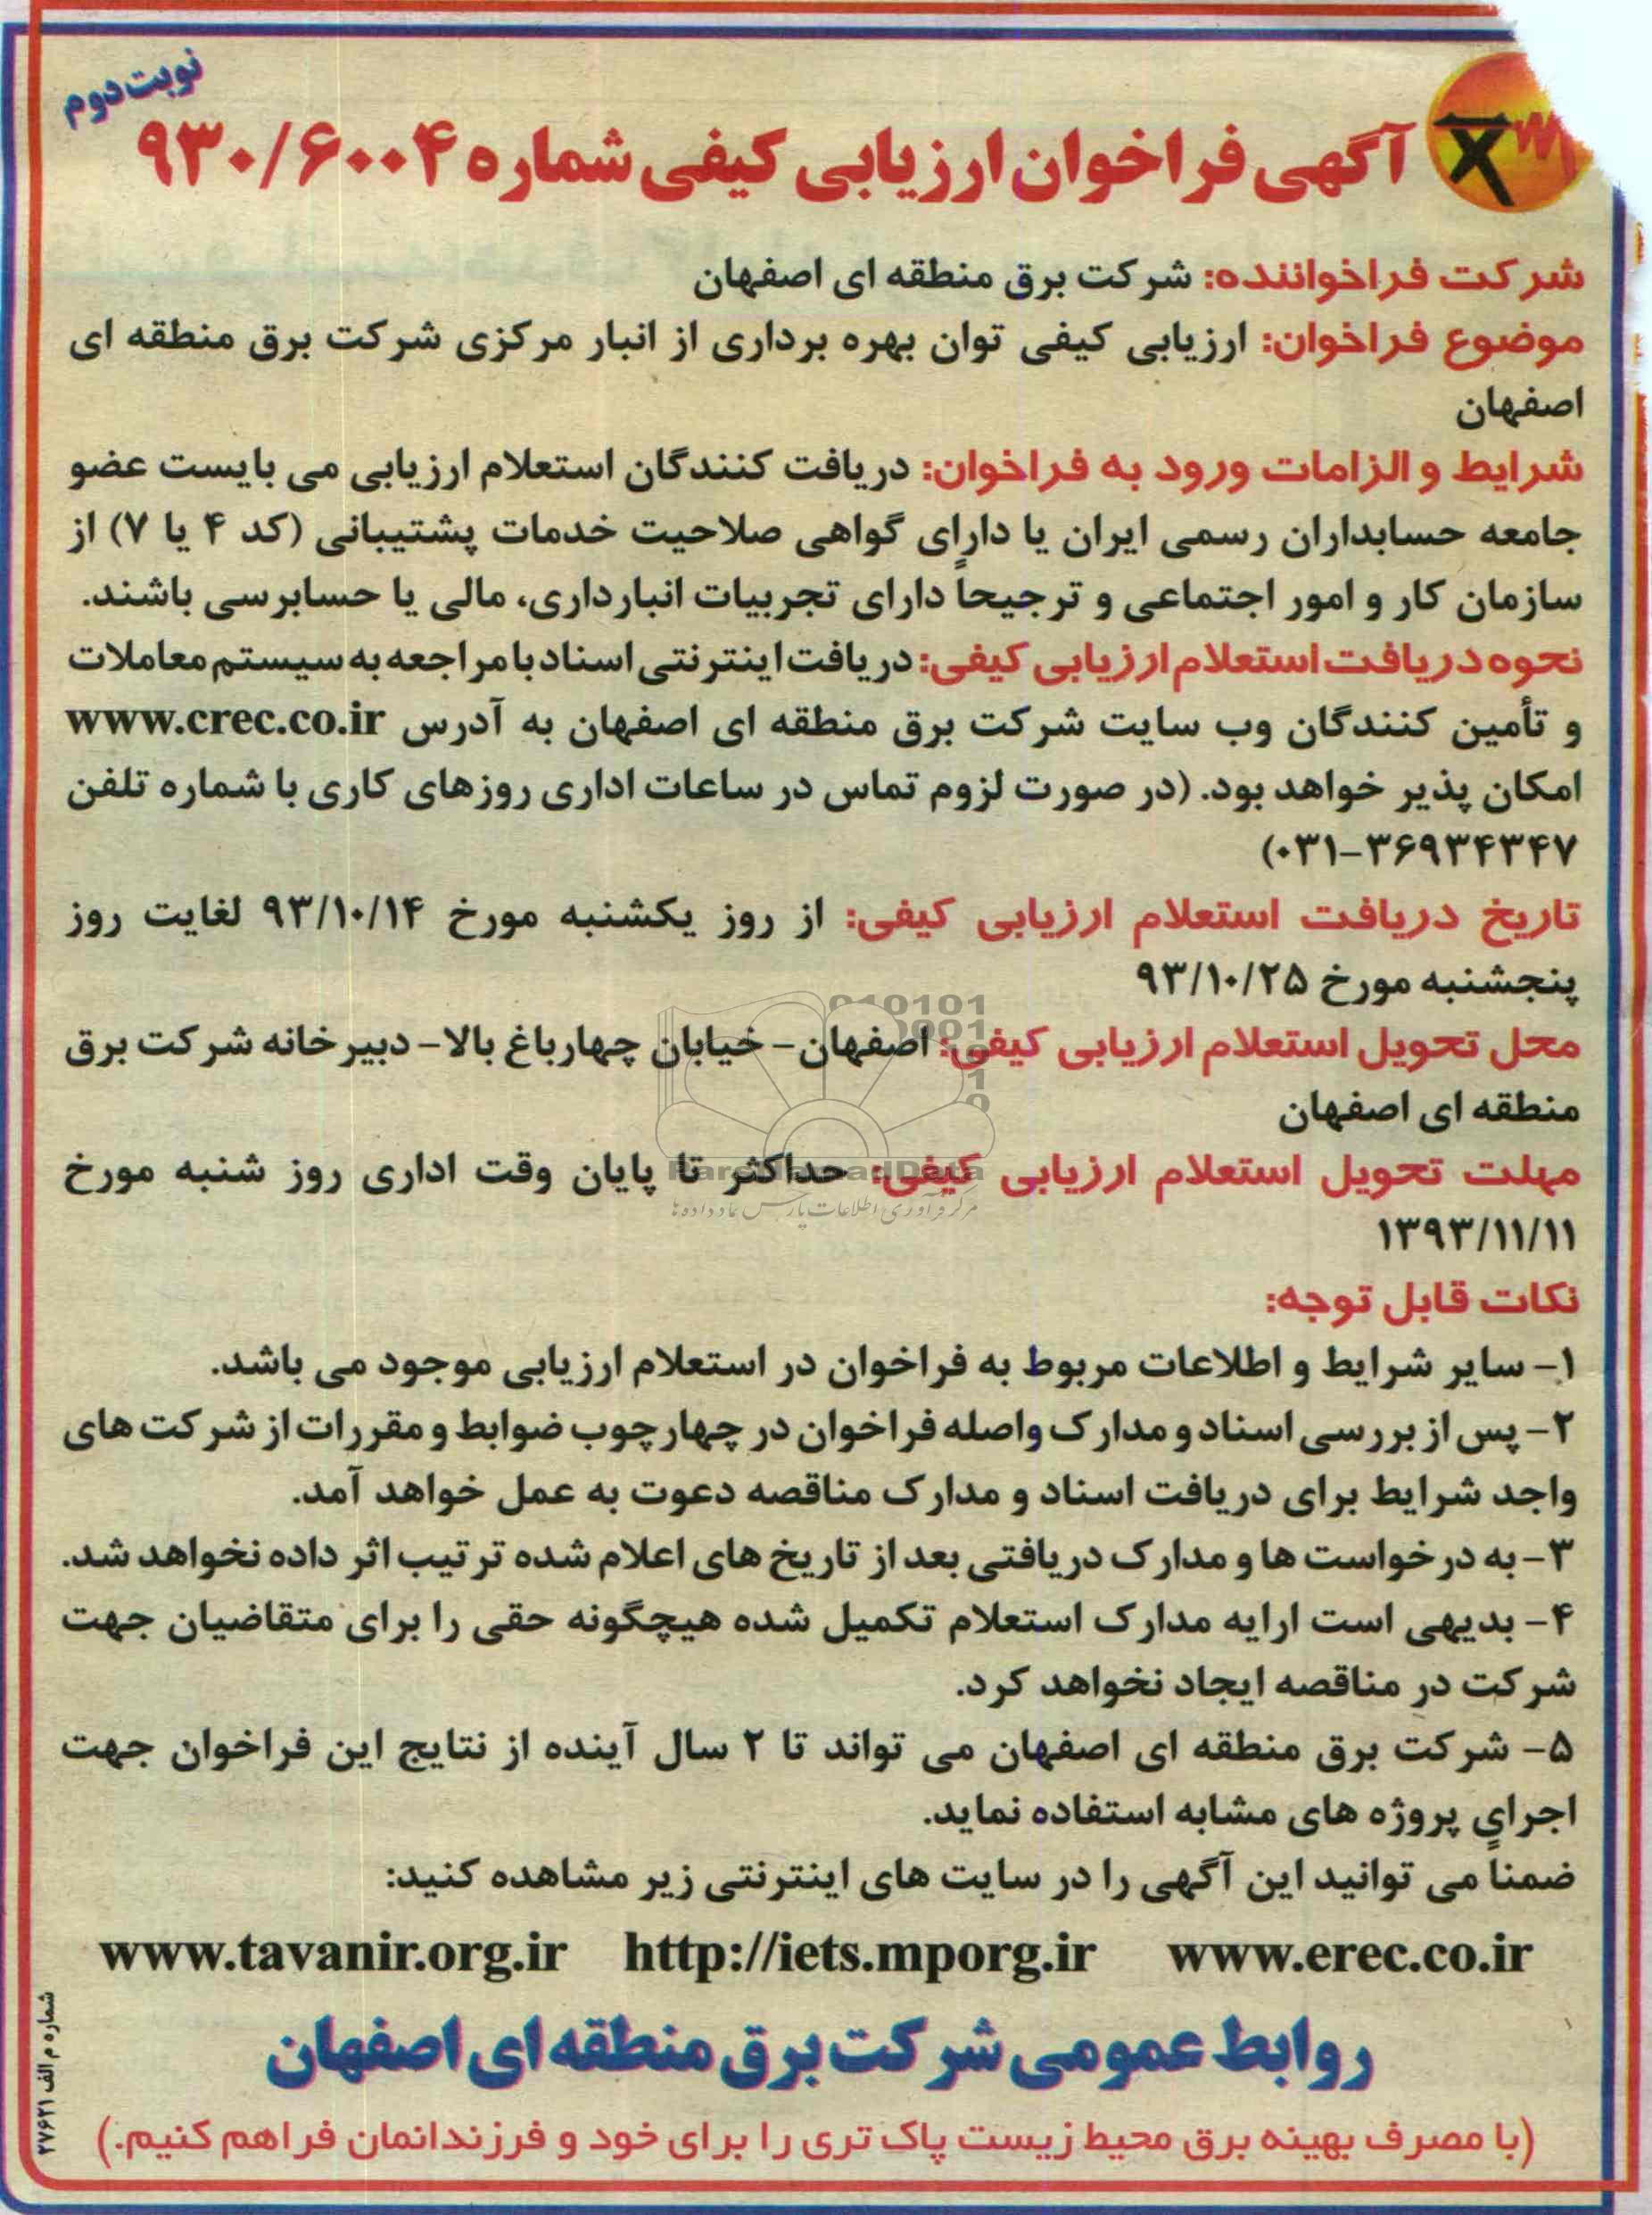 نوبت دوم
آگهی فراخوان ارزیابی کیفی شماره ۹۳۰/۶۰۰۴
شرکت فراخواننده: شرکت برق منطقه ای اصفهان
موضوع فراخوان: ارزیابی کیفی توان بهره برداری از انبار مرکزی شرکت برق منطقه ای
اصفهان
شرایط و الزامات ورود به فراخوان: دریافت کنندگان استعلام ارزیابی می بایست عضو
جامعه حسابداران رسمی ایران یا دارای گواهی صلاحیت خدمات پشتیبانی (کد ۴ یا ۷) از
سازمان کار و امور اجتماعی و ترجیحاً دارای تجربیات انبارداری، مالی یا حسابرسی باشند.
نحوه دریافت استعلام ارزیابی کیفی: دریافت اینترنتی اسناد با مراجعه به سیستم معاملات
و تأمین کنندگان وب سایت شرکت برق منطقه ای اصفهان به آدرس www.crec.co.ir
امکان پذیر خواهد بود. (در صورت لزوم تماس در ساعات اداری روزهای کاری با شماره تلفن
۰۳۱-۳۶۹۳۴۳۴۷)
تاریخ دریافت استعلام ارزیابی کیفی: از روز یکشنبه مورخ ۹۳/۱۰/۱۴ لغایت روز
پنجشنبه مورخ ۹۳/۱۰/۲۵
محل تحویل استعلام ارزیابی کیفی: اصفهان - خیابان چهارباغ بالا - دبیرخانه شرکت برق
منطقه ای اصفهان
مهلت تحویل استعلام ارزیابی کیفی: حداکثر تا پایان وقت اداری روز شنبه مورخ
۱۳۹۳/۱۱/۱۱
نکات قابل توجه:
۱- سایر شرایط و اطلاعات مربوط به فراخوان در استعلام ارزیابی موجود می باشد.
۲- پس از بررسی اسناد و مدارک واصله فراخوان در چهارچوب ضوابط و مقررات از شرکت های
واجد شرایط برای دریافت اسناد و مدارک مناقصه دعوت به عمل خواهد آمد.
۳- به درخواست ها و مدارک دریافتی بعد از تاریخ های اعلام شده ترتیب اثر داده نخواهد شد.
۴- بدیهی است ارایه مدارک استعلام تکمیل شده هیچگونه حقی را برای متقاضیان جهت
شرکت در مناقصه ایجاد نخواهد کرد.
۵- شرکت برق منطقه ای اصفهان می تواند تا ۲ سال آینده از نتایج این فراخوان جهت
اجرای پروژه های مشابه استفاده نماید.
ضمناً می توانید این آگهی را در سایت های اینترنتی زیر مشاهده کنید:
www.tavanir.org.ir http://iets.mporg.ir www.erec.co.ir
روابط عمومی شرکت برق منطقه ای اصفهان
(با مصرف بهینه برق محیط زیست پاک تری را برای خود و فرزندانمان فراهم کنیم.)
شماره م الف ۲۷۶۲۱
مرکز فرآوری اطلاعات پارس نماد داده ها